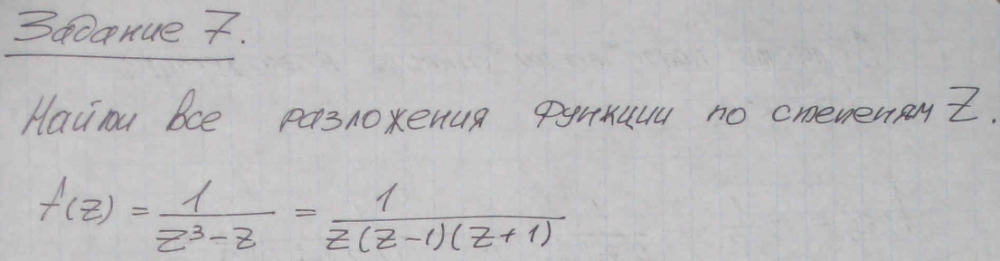 Задание 7.
Найти все разложения функции по степеням Z.
f(z) = 1/(z³-z) = 1/(z(z-1)(z+1))